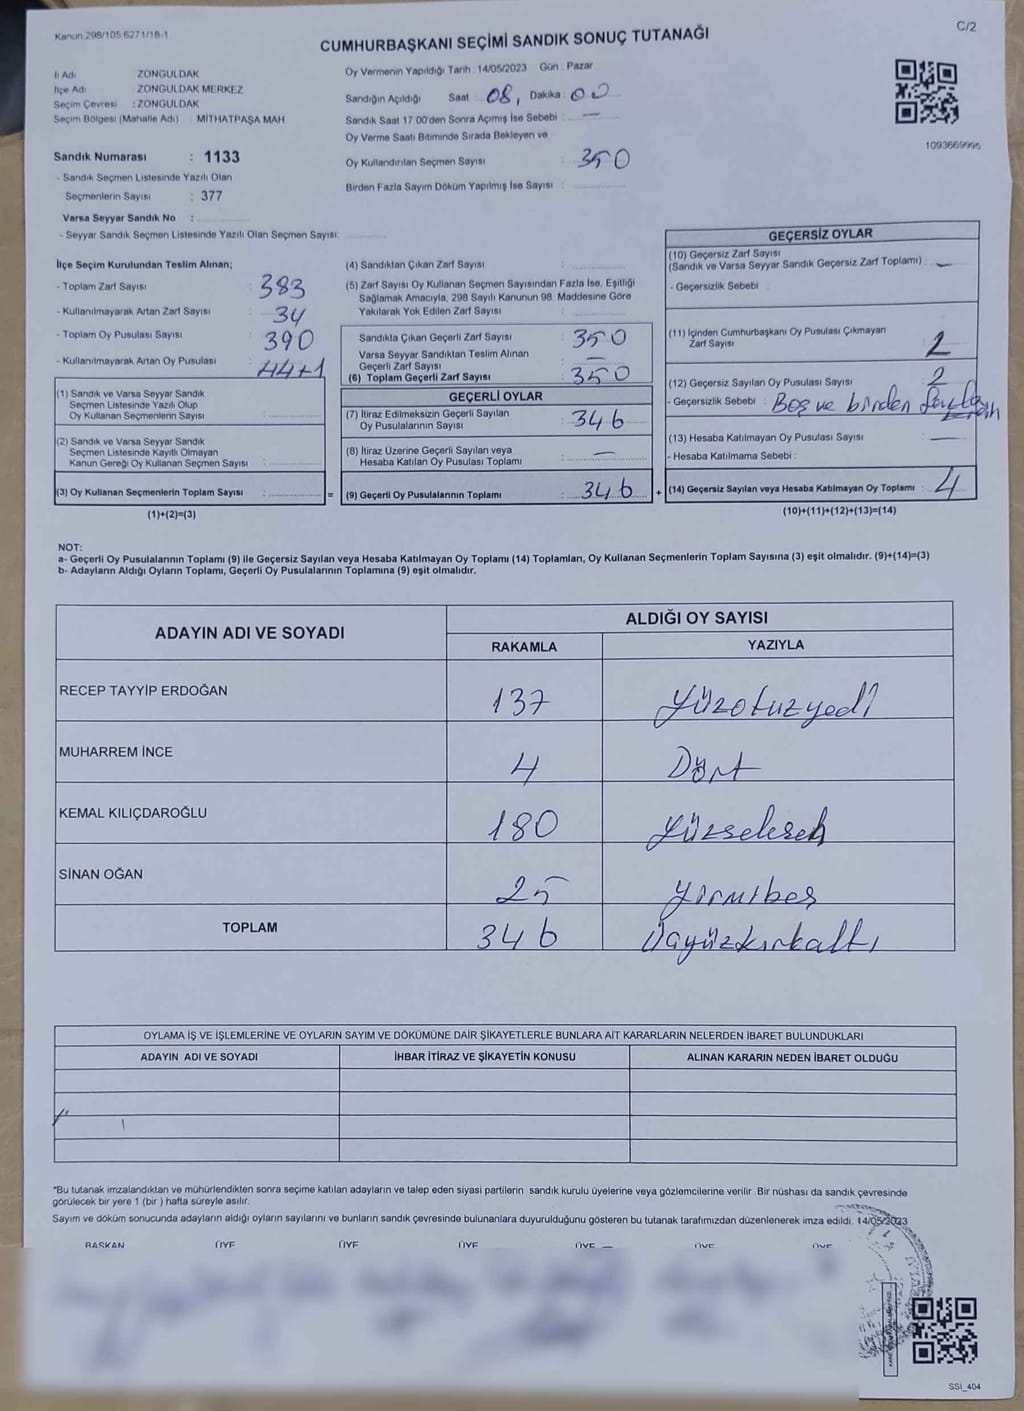 Kanun.298/105.6271/18-1
C/2
CUMHURBAŞKANI SEÇİMİ SANDIK SONUÇ TUTANAĞI
İl Adı ZONGULDAK
İlçe Adı ZONGULDAK MERKEZ
Seçim Çevresi : ZONGULDAK
Seçim Bölgesi (Mahalle Adı) : MİTHATPAŞA MAH
Sandık Numarası : 1133
- Sandık Seçmen Listesinde Yazılı Olan
Seçmenlerin Sayısı : 377
Varsa Seyyar Sandık No :
- Seyyar Sandık Seçmen Listesinde Yazılı Olan Seçmen Sayısı:
Oy Vermenin Yapıldığı Tarih : 14/05/2023 Gün : Pazar
Sandığın Açıldığı Saat 08, Dakika : 00
Sandık Saat 17.00'den Sonra Açımış İse Sebebi : —
Oy Verme Saati Bitiminde Sırada Bekleyen ve
Oy Kullandırılan Seçmen Sayısı : 350
Birden Fazla Sayım Döküm Yapılmış İse Sayısı :
1093669995
İlçe Seçim Kurulundan Teslim Alınan;
- Toplam Zarf Sayısı : 383
- Kullanılmayarak Artan Zarf Sayısı : 34
- Toplam Oy Pusulası Sayısı : 390
- Kullanılmayarak Artan Oy Pusulası : 44+1
(1) Sandık ve Varsa Seyyar Sandık
Seçmen Listesinde Yazılı Olup
Oy Kullanan Seçmenlerin Sayısı :
(2) Sandık ve Varsa Seyyar Sandık
Seçmen Listesinde Kayıtlı Olmayan
Kanun Gereği Oy Kullanan Seçmen Sayısı :
(3) Oy Kullanan Seçmenlerin Toplam Sayısı : =
(1)+(2)=(3)
(4) Sandıktan Çıkan Zarf Sayısı :
(5) Zarf Sayısı Oy Kullanan Seçmen Sayısından Fazla İse, Eşitliği
Sağlamak Amacıyla, 298 Sayılı Kanunun 98. Maddesine Göre
Yakılarak Yok Edilen Zarf Sayısı :
Sandıkta Çıkan Geçerli Zarf Sayısı : 350
Varsa Seyyar Sandıktan Teslim Alınan
Geçerli Zarf Sayısı : —
(6) Toplam Geçerli Zarf Sayısı : 350
GEÇERLİ OYLAR
(7) İtiraz Edilmeksizin Geçerli Sayılan
Oy Pusulalarının Sayısı : 346
(8) İtiraz Üzerine Geçerli Sayılan veya
Hesaba Katılan Oy Pusulası Toplamı : —
(9) Geçerli Oy Pusulalarının Toplamı : 346 +
GEÇERSİZ OYLAR
(10) Geçersiz Zarf Sayısı
(Sandık ve Varsa Seyyar Sandık Geçersiz Zarf Toplamı) : —
- Geçersizlik Sebebi :
(11) İçinden Cumhurbaşkanı Oy Pusulası Çıkmayan
Zarf Sayısı : 2
(12) Geçersiz Sayılan Oy Pusulası Sayısı : 2
- Geçersizlik Sebebi : Boş ve birden fazla
(13) Hesaba Katılmayan Oy Pusulası Sayısı : —
- Hesaba Katılmama Sebebi :
(14) Geçersiz Sayılan veya Hesaba Katılmayan Oy Toplamı : 4
(10)+(11)+(12)+(13)=(14)
NOT:
a- Geçerli Oy Pusulalarının Toplamı (9) ile Geçersiz Sayılan veya Hesaba Katılmayan Oy Toplamı (14) Toplamları, Oy Kullanan Seçmenlerin Toplam Sayısına (3) eşit olmalıdır. (9)+(14)=(3)
b- Adayların Aldığı Oyların Toplamı, Geçerli Oy Pusulalarının Toplamına (9) eşit olmalıdır.
ADAYIN ADI VE SOYADI
ALDIĞI OY SAYISI
RAKAMLA YAZIYLA
RECEP TAYYİP ERDOĞAN 137 Yüzotuzyedi
MUHARREM İNCE 4 Dört
KEMAL KILIÇDAROĞLU 180 Yüzseksen
SİNAN OĞAN 25 Yirmibeş
TOPLAM 346 Üçyüzkırkaltı
OYLAMA İŞ VE İŞLEMLERİNE VE OYLARIN SAYIM VE DÖKÜMÜNE DAİR ŞİKAYETLERLE BUNLARA AİT KARARLARIN NELERDEN İBARET BULUNDUKLARI
ADAYIN ADI VE SOYADI İHBAR İTİRAZ VE ŞİKAYETİN KONUSU ALINAN KARARIN NEDEN İBARET OLDUĞU
"Bu tutanak imzalandıktan ve mühürlendikten sonra seçime katılan adayların ve talep eden siyasi partilerin sandık kurulu üyelerine veya gözlemcilerine verilir. Bir nüshası da sandık çevresinde
görülecek bir yere 1 (bir) hafta süreyle asılır.
Sayım ve döküm sonucunda adayların aldığı oyların sayılarını ve bunların sandık çevresinde bulunanlara duyurulduğunu gösteren bu tutanak tarafımızdan düzenlenerek imza edildi. 14/05/2023
BAŞKAN ÜYE ÜYE ÜYE ÜYE ÜYE ÜYE
SSİ_404